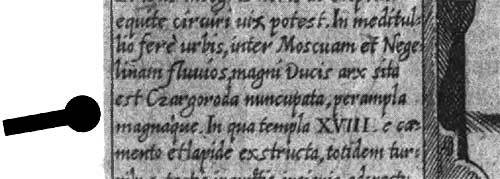 equite circuri uix potest. In meditul-
lio ferè urbis, inter Moscuam et Nege-
linam fluuios, magni Ducis arx sita
est Czargoroda nuncupata, perampla
magnaque. In qua templa XVIII. e cæ-
mento et lapide exstructa, totidem tur-